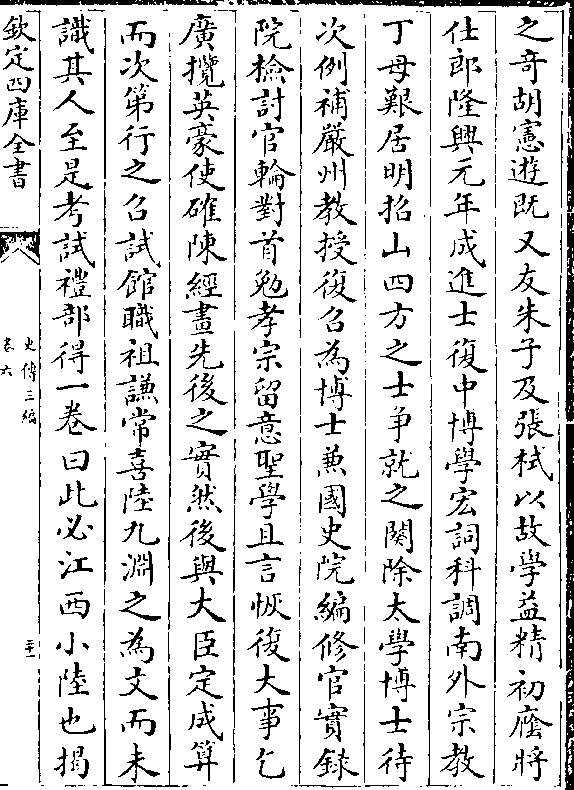 之奇胡憲遊既又友朱子及張栻以故學益精初廕將
仕郎隆興元年成進士復中博學宏詞科調南外宗教
丁母艱居明招山四方之士爭就之闋除太學博士待
次例補嚴州教授復召為博士兼國史院編修官實録
院檢討官輪對首勉孝宗留意聖學且言恢復大事乞
廣攬英豪使確陳經畫先後之實然後與大臣定成算
而次第行之召試館職祖謙常喜陸九淵之為文而未
識其人至是考試禮部得一卷曰此必江西小陸也揭
欽定四庫全書
史傳三編
卷六